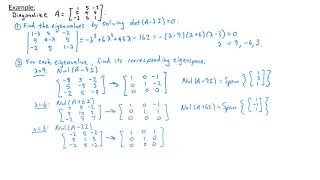 Example:
Diagonalize A = [1 5 -2
5 4 5
-2 5 1].
① Find the eigenvalues by solving det(A-λI)=0:
|1-λ 5 -2
5 4-λ 5
-2 5 1-λ| = -λ³+6λ²+45λ-162 = -(λ-9)(λ+6)(λ-3)=0
λ = 9, -6, 3
② For each eigenvalue, find its corresponding eigenspace.
λ=9: Nul(A-9I)
[-8 5 -2
5 -5 5
-2 5 -8] → [1 0 -1
0 1 -2
0 0 0] Nul(A-9I) = Span {[1
2
1]}
λ=-6: Nul(A+6I)
[7 5 -2
5 10 5
-2 5 7] → [1 0 -1
0 1 1
0 0 0] Nul(A+6I) = Span {[1
-1
1]}
λ=3: Nul(A-3I)
[-2 5 -2
5 1 5
-2 5 -2] → [1 0 1
0 1 0
0 0 0]